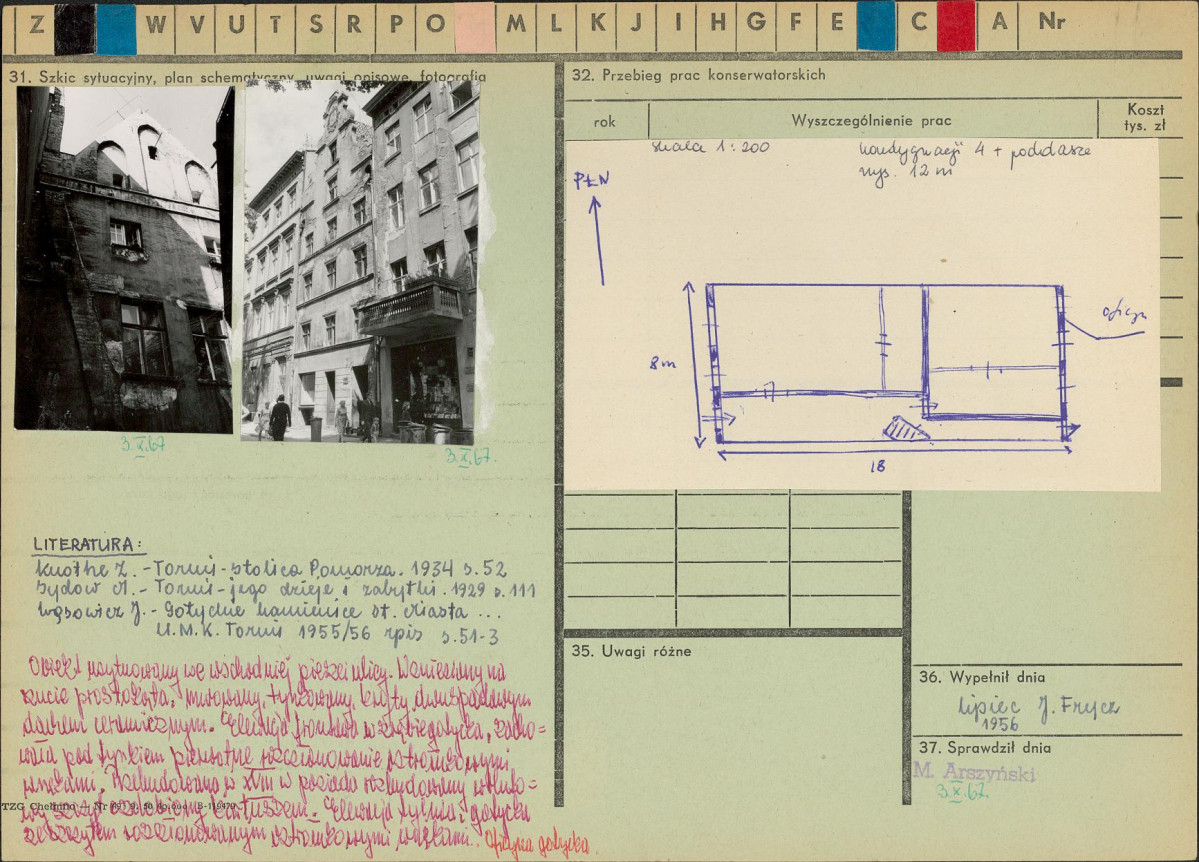 Z W V U T S R P O M L K J I H G F E C A Nr
31. Szkic sytuacyjny, plan schematyczny, uwagi opisowe, fotografia
3.X.67
3.X.67.
LITERATURA:
Knothe Z. - Toruń - stolica Pomorza. 1934 s. 52
Sydow A. - Toruń - jego dzieje i zabytki. 1929 s. 111
Wąsowicz J. - Gotyckie kamienice St. Miasta ...
U.M.K. Toruń 1955/56 rpis s. 51-3
Obiekt usytuowany we wschodniej pierzei ulicy. Wzniesiony na
rzucie prostokąta, murowany, tynkowany, kryty dwuspadowym
dachem ceramicznym. Elewacja frontowa gotycka, zacho=
wała pod tynkiem pierwotne rozczłonkowanie ostrołukowymi
wnękami. Przebudowana w XVIII w posiada rozbudowany
szczyt ozdobiony kartuszem. Elewacja tylna gotycka
ze szczytem rozczłonkowanym ostrołukowymi wnękami. Oficyna gotycka.
TZG Chełmno
32. Przebieg prac konserwatorskich
rok Wyszczególnienie prac Koszt
tys. zł
skala 1:200 kondygnacji 4 + poddasze
wys. 12 m
PŁN
oficyn
8 m
18
35. Uwagi różne
36. Wypełnił dnia
lipiec J. Frycz
1956
37. Sprawdził dnia
M. Arszyński
3.X.67.